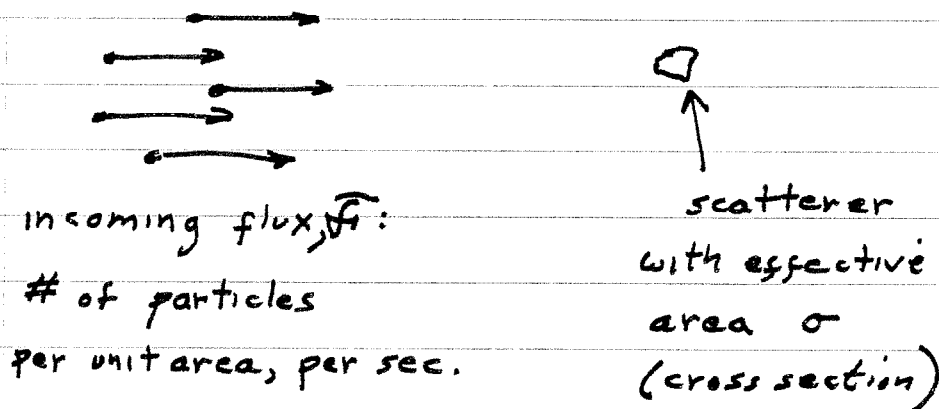 incoming flux, F:
# of particles
per unit area, per sec.
scatterer
with effective
area σ
(cross section)